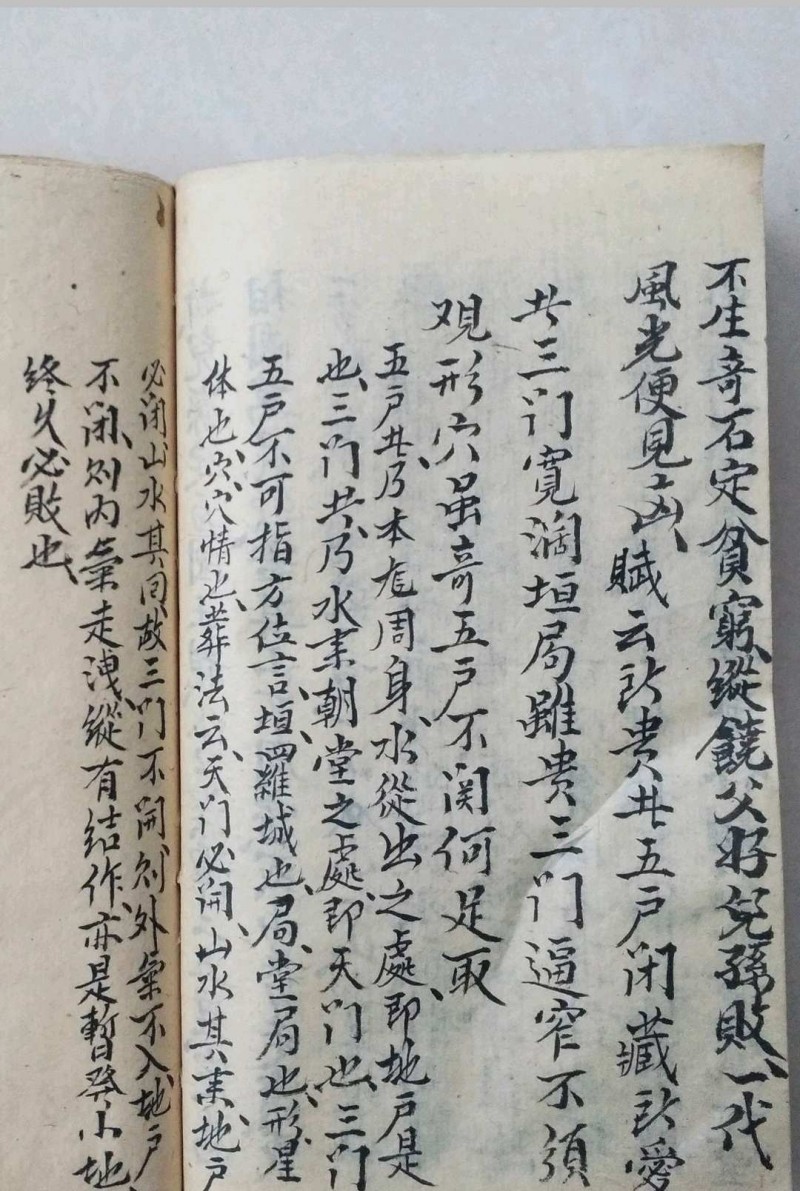 不生奇石定貧窮縱饒父好兒孫敗一代
風光便見凶賦云所貴共五戶闭藏所愛
共三门寬濶垣局雖贵三门逼窄不須
观形穴虽奇五戶不関何足取
五戶共乃本疣周身水從出之處即地戶是
也三门共乃水来朝堂之處即天门也三门
五戶不可指方位言垣罗羅城也局堂局也形星
体也穴穴情也葬法云天门必開山水其来地戶
必闭山水其回故三门不開则外氣不入地戶
不闭则内氣走洩縱有结作亦是暫發小地
终久必敗也